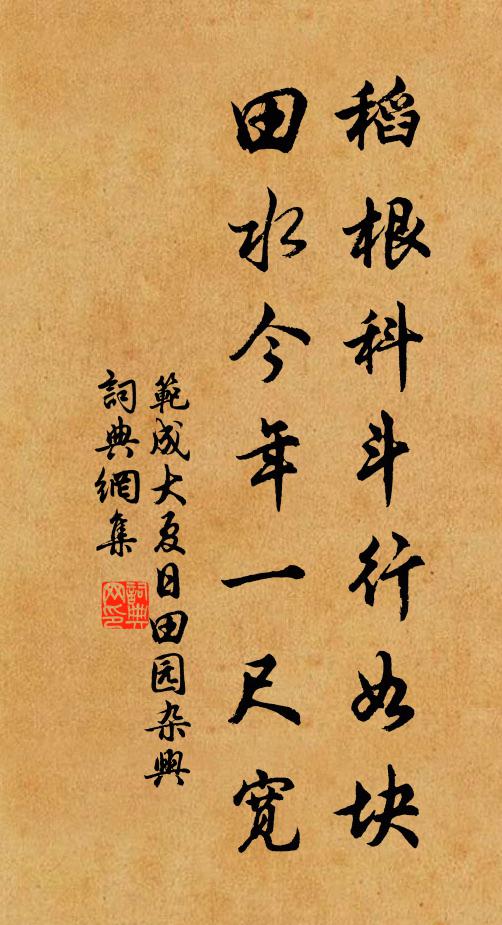 稻根科斗行如块
田水今年一尺宽
範成大夏日田园杂興
詞典網集
詞典网印